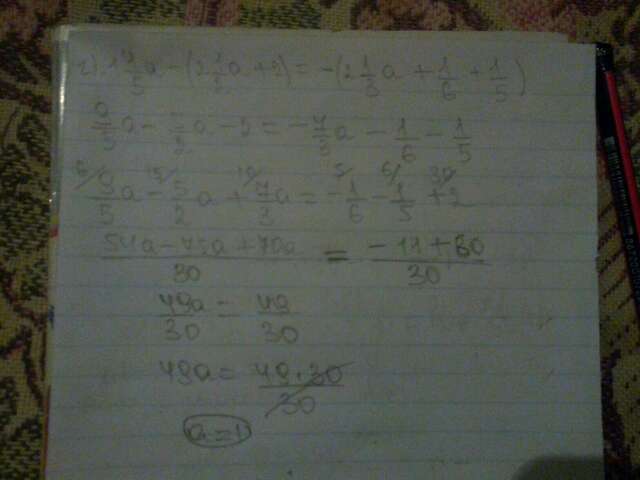 г). 1 4/5 a - (2 1/2 a + 2) = -(2 1/3 a + 1/6 + 1/5)
9/5 a - 5/2 a - 2 = - 7/3 a - 1/6 - 1/5
6/ 9/5 a - 15/ 5/2 a + 10/ 7/3 a = - 5/ 1/6 - 6/ 1/5 + 30/ 2
54a - 75a + 70a / 30 = -11 + 60 / 30
49a / 30 = 49 / 30
49a = 49 · 30 / 30
a = 1